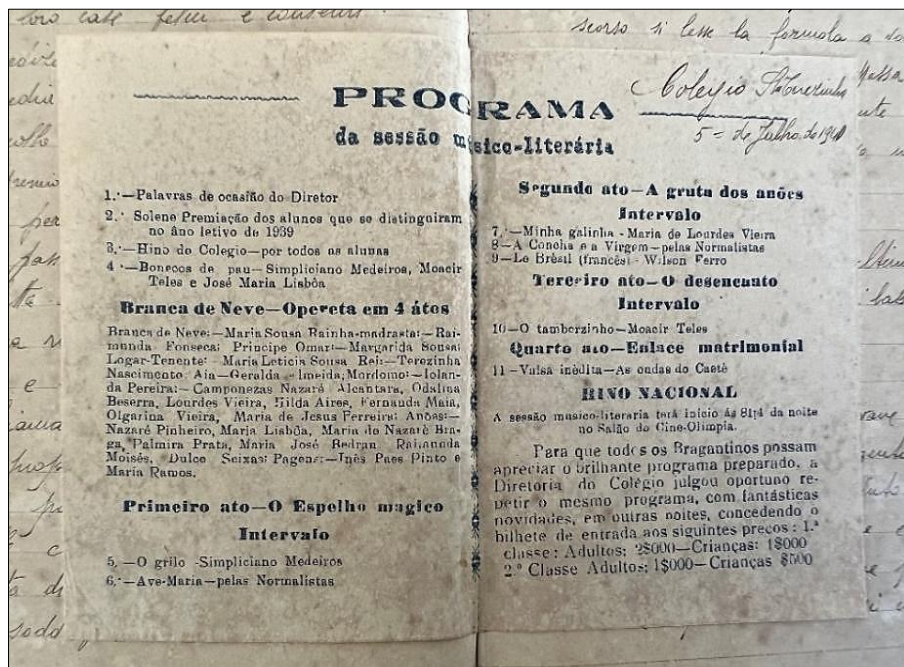 PROGRAMA
da sessão músico-literária
Colegio Sta Terezinha
5 = de Julho de 1940
1.·—Palavras de ocasião do Diretor
2.· Solene Premiação dos alunos que se distinguiram
no âno letivo de 1939
3.·—Hino do Colegio—por todos as alunas
4 ·—Bonecos de pau—Simpliciano Medeiros, Moacir
Teles e José Maria Lisbôa
Branca de Neve—Opereta em 4 átos
Branca de Neve:—Maria Sousa Rainha-madrasta:—Rai-
munda Fonseca; Principe Omar:—Margarida Sousa;
Logar-Tenente: Maria Leticia Sousa Rei:—Terezinha
Nascimento; Aia—Geralda Almeida; Mordomo:—Iolan-
da Pereira:—Camponezas Nazaré Alcantara, Odalina
Beserra, Lourdes Vieira, Hilda Aires, Fernanda Maia,
Olgarina Vieira, Maria de Jesus Ferreira: Anõas:—
Nazaré Pinheiro, Maria Lisbôa, Maria do Nazaré Bra-
ga, Palmira Prata, Maria José Bedran, Raimunda
Moisés, Dulce Seixas; Pagens:—Inês Paes Pinto e
Maria Ramos.
Primeiro ato—O Espelho magico
Intervalo
5, —O grilo -Simpliciano Medeiros
6,·—Ave-Maria—pelas Normalistas
Segundo ato—A gruta dos anões
Intervalo
7,·—Minha galinha - Maria de Lourdes Vieira
8—A Concha e a Virgem—pelas Normalistas
9—Le Brésil (francês) - Wilson Ferro
Terceiro ato—O desencanto
Intervalo
10—O tamborzinho—Moacir Teles
Quarto ato—Enlace matrimonial
11 -Valsa inédita—As ondas do Caeté
HINO NACIONAL
A sessão musico-literaria terá inicio ás 81|4 da noite
no Salão do Cine-Olimpia.
Para que todos os Bragantinos possam
apreciar o brilhante programa preparado, a
Diretoria do Colégio julgou oportuno re-
petir o mesmo programa, com fantásticas
novidades, em outras noites, concedendo o
bilhete de entrada aos siguintes precos: 1.ª
classe: Adultos: 2$000—Crianças: 1$000
2.ª Classe Adultos; 1$000—Crianças $500
scorso si lesse la formula